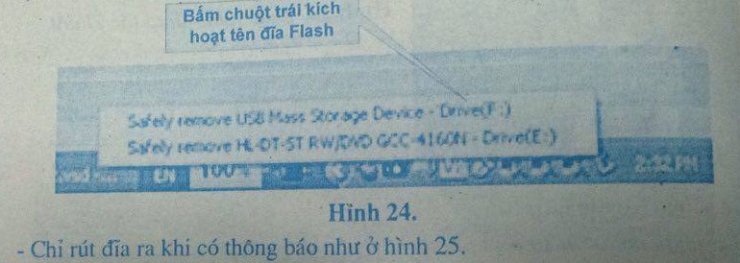 Bấm chuột trái kích
hoạt tên đĩa Flash
Safely remove USB Mass Storage Device - Drive(F:)
Safely remove HL-DT-ST RW/DVD GCC-4160N - Drive(E:)
EN 100% 2:52 PM
Hình 24.
- Chỉ rút đĩa ra khi có thông báo như ở hình 25.